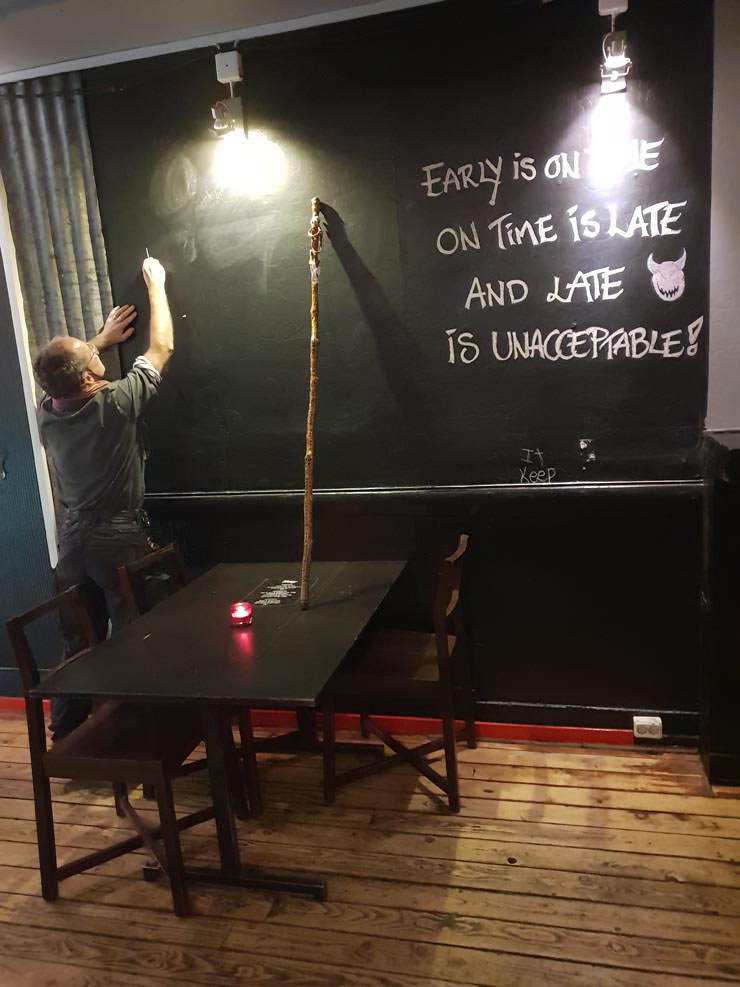 EARLY IS ON TIME
ON TIME IS LATE
AND LATE
IS UNACCEPTABLE!
It
Keep